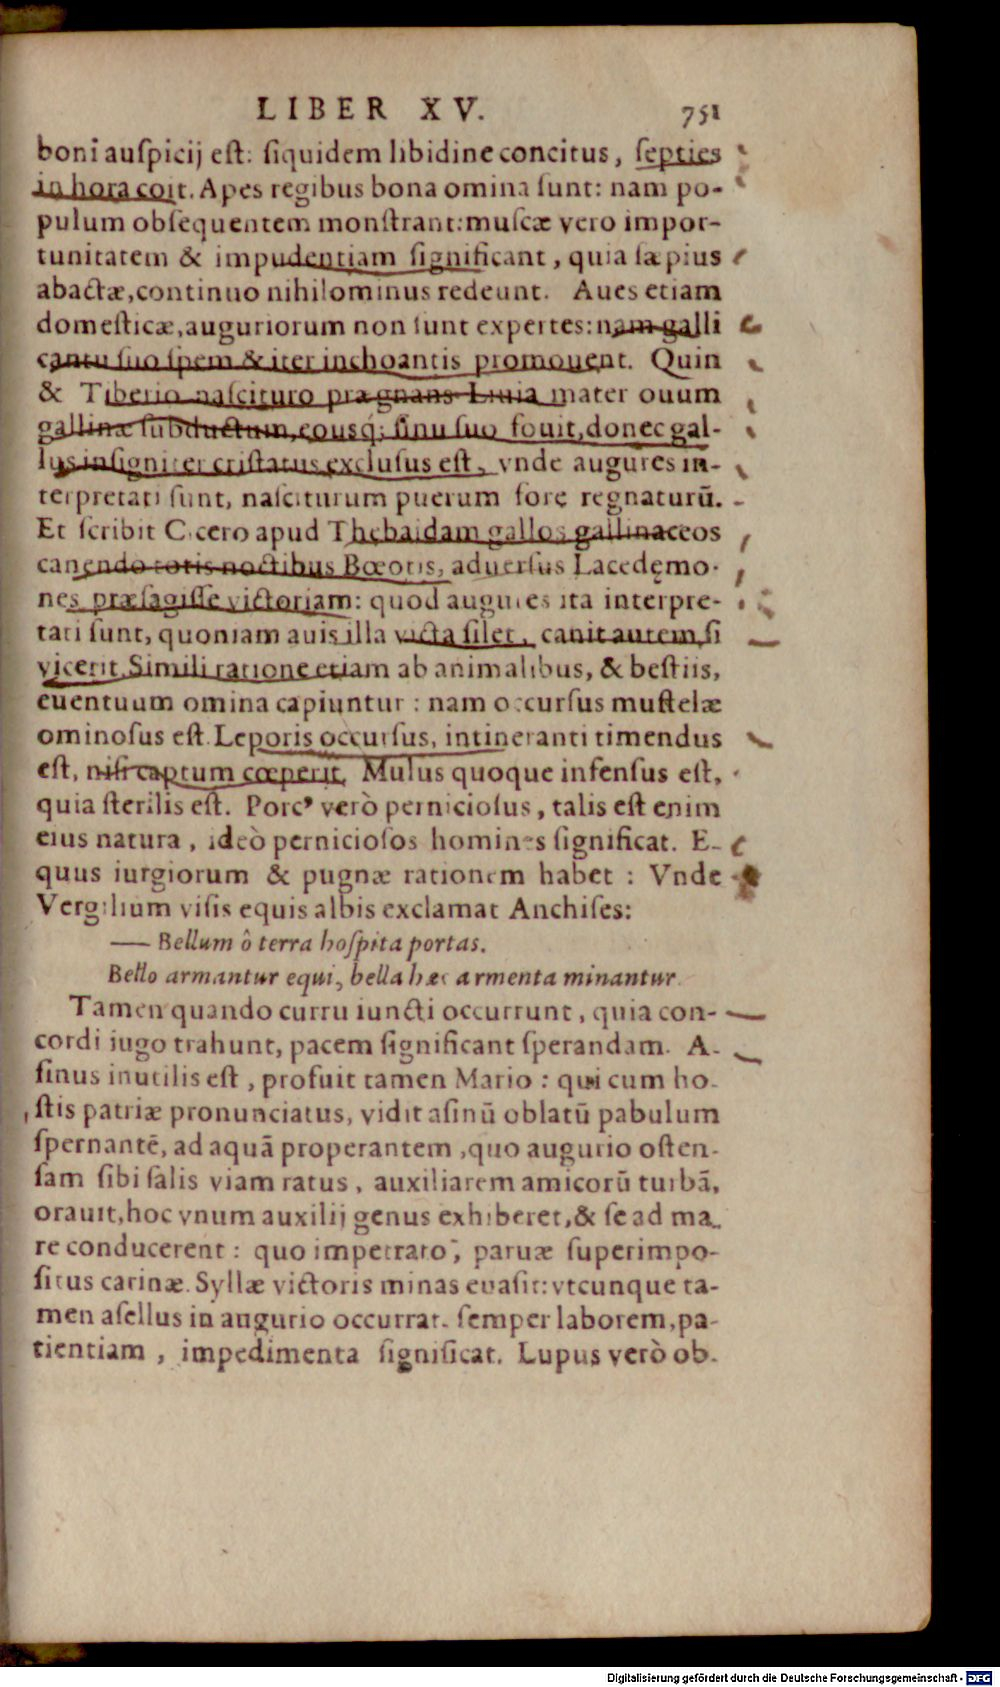 LIBER XV. 751
boni auſpicij eſt: ſiquidem libidine concitus, ſepties
in hora coit. Apes regibus bona omina ſunt: nam po-
pulum obſequentem monſtrant: muſcæ vero impor-
tunitatem & impudentiam ſignificant, quia ſæpius
abactæ, continuo nihilominus redeunt. Aues etiam
domeſticæ, auguriorum non ſunt expertes: nam galli
cantu ſuo ſpem & iter inchoantis promouent. Quin
& Tiberio naſcituro prægnans Liuia mater ouum
gallinæ ſubductum, eousq; ſinu ſuo fouit, donec gal-
lus inſigniter criſtatus excluſus eſt, vnde augures in-
terpretati ſunt, naſciturum puerum fore regnaturū.
Et ſcribit Cicero apud Thebaidam gallos gallinaceos
canendo totis noctibus Bœotis, aduerſus Lacedęmo-
nes præſagiſſe victoriam: quod augures ita interpre-
tati ſunt, quoniam auis illa victa ſilet, canit autem, ſi
vicerit. Simili ratione etiam ab animalibus, & beſtiis,
euentuum omina capiuntur: nam occurſus muſtelæ
ominoſus eſt. Leporis occurſus, intineranti timendus
eſt, niſi captum cœperit. Mulus quoque infenſus eſt,
quia ſterilis eſt. Porcꝰ verò pernicioſus, talis eſt enim
eius natura, ideò pernicioſos homines ſignificat. E-
quus iurgiorum & pugnæ rationem habet: Vnde
Vergilium viſis equis albis exclamat Anchiſes:
— Bellum ô terra hoſpita portas.
Bello armantur equi, bella hæc armenta minantur.
Tamen quando curru iuncti occurrunt, quia con-
cordi iugo trahunt, pacem ſignificant ſperandam. A-
ſinus inutilis eſt, profuit tamen Mario: qui cum ho-
ſtis patriæ pronunciatus, vidit aſinū oblatū pabulum
ſpernantē, ad aquā properantem, quo augurio oſten-
ſam ſibi ſalis viam ratus, auxiliarem amicorū turbā,
orauit, hoc vnum auxilij genus exhiberet, & ſe ad ma-
re conducerent: quo impetrato, paruæ ſuperimpo-
ſitus carinæ. Syllæ victoris minas euaſit: vtcunque ta-
men aſellus in augurio occurrat. ſemper laborem, pa-
tientiam, impedimenta ſignificat. Lupus verò ob-
Digitalisierung gefördert durch die Deutsche Forschungsgemeinschaft - DFG